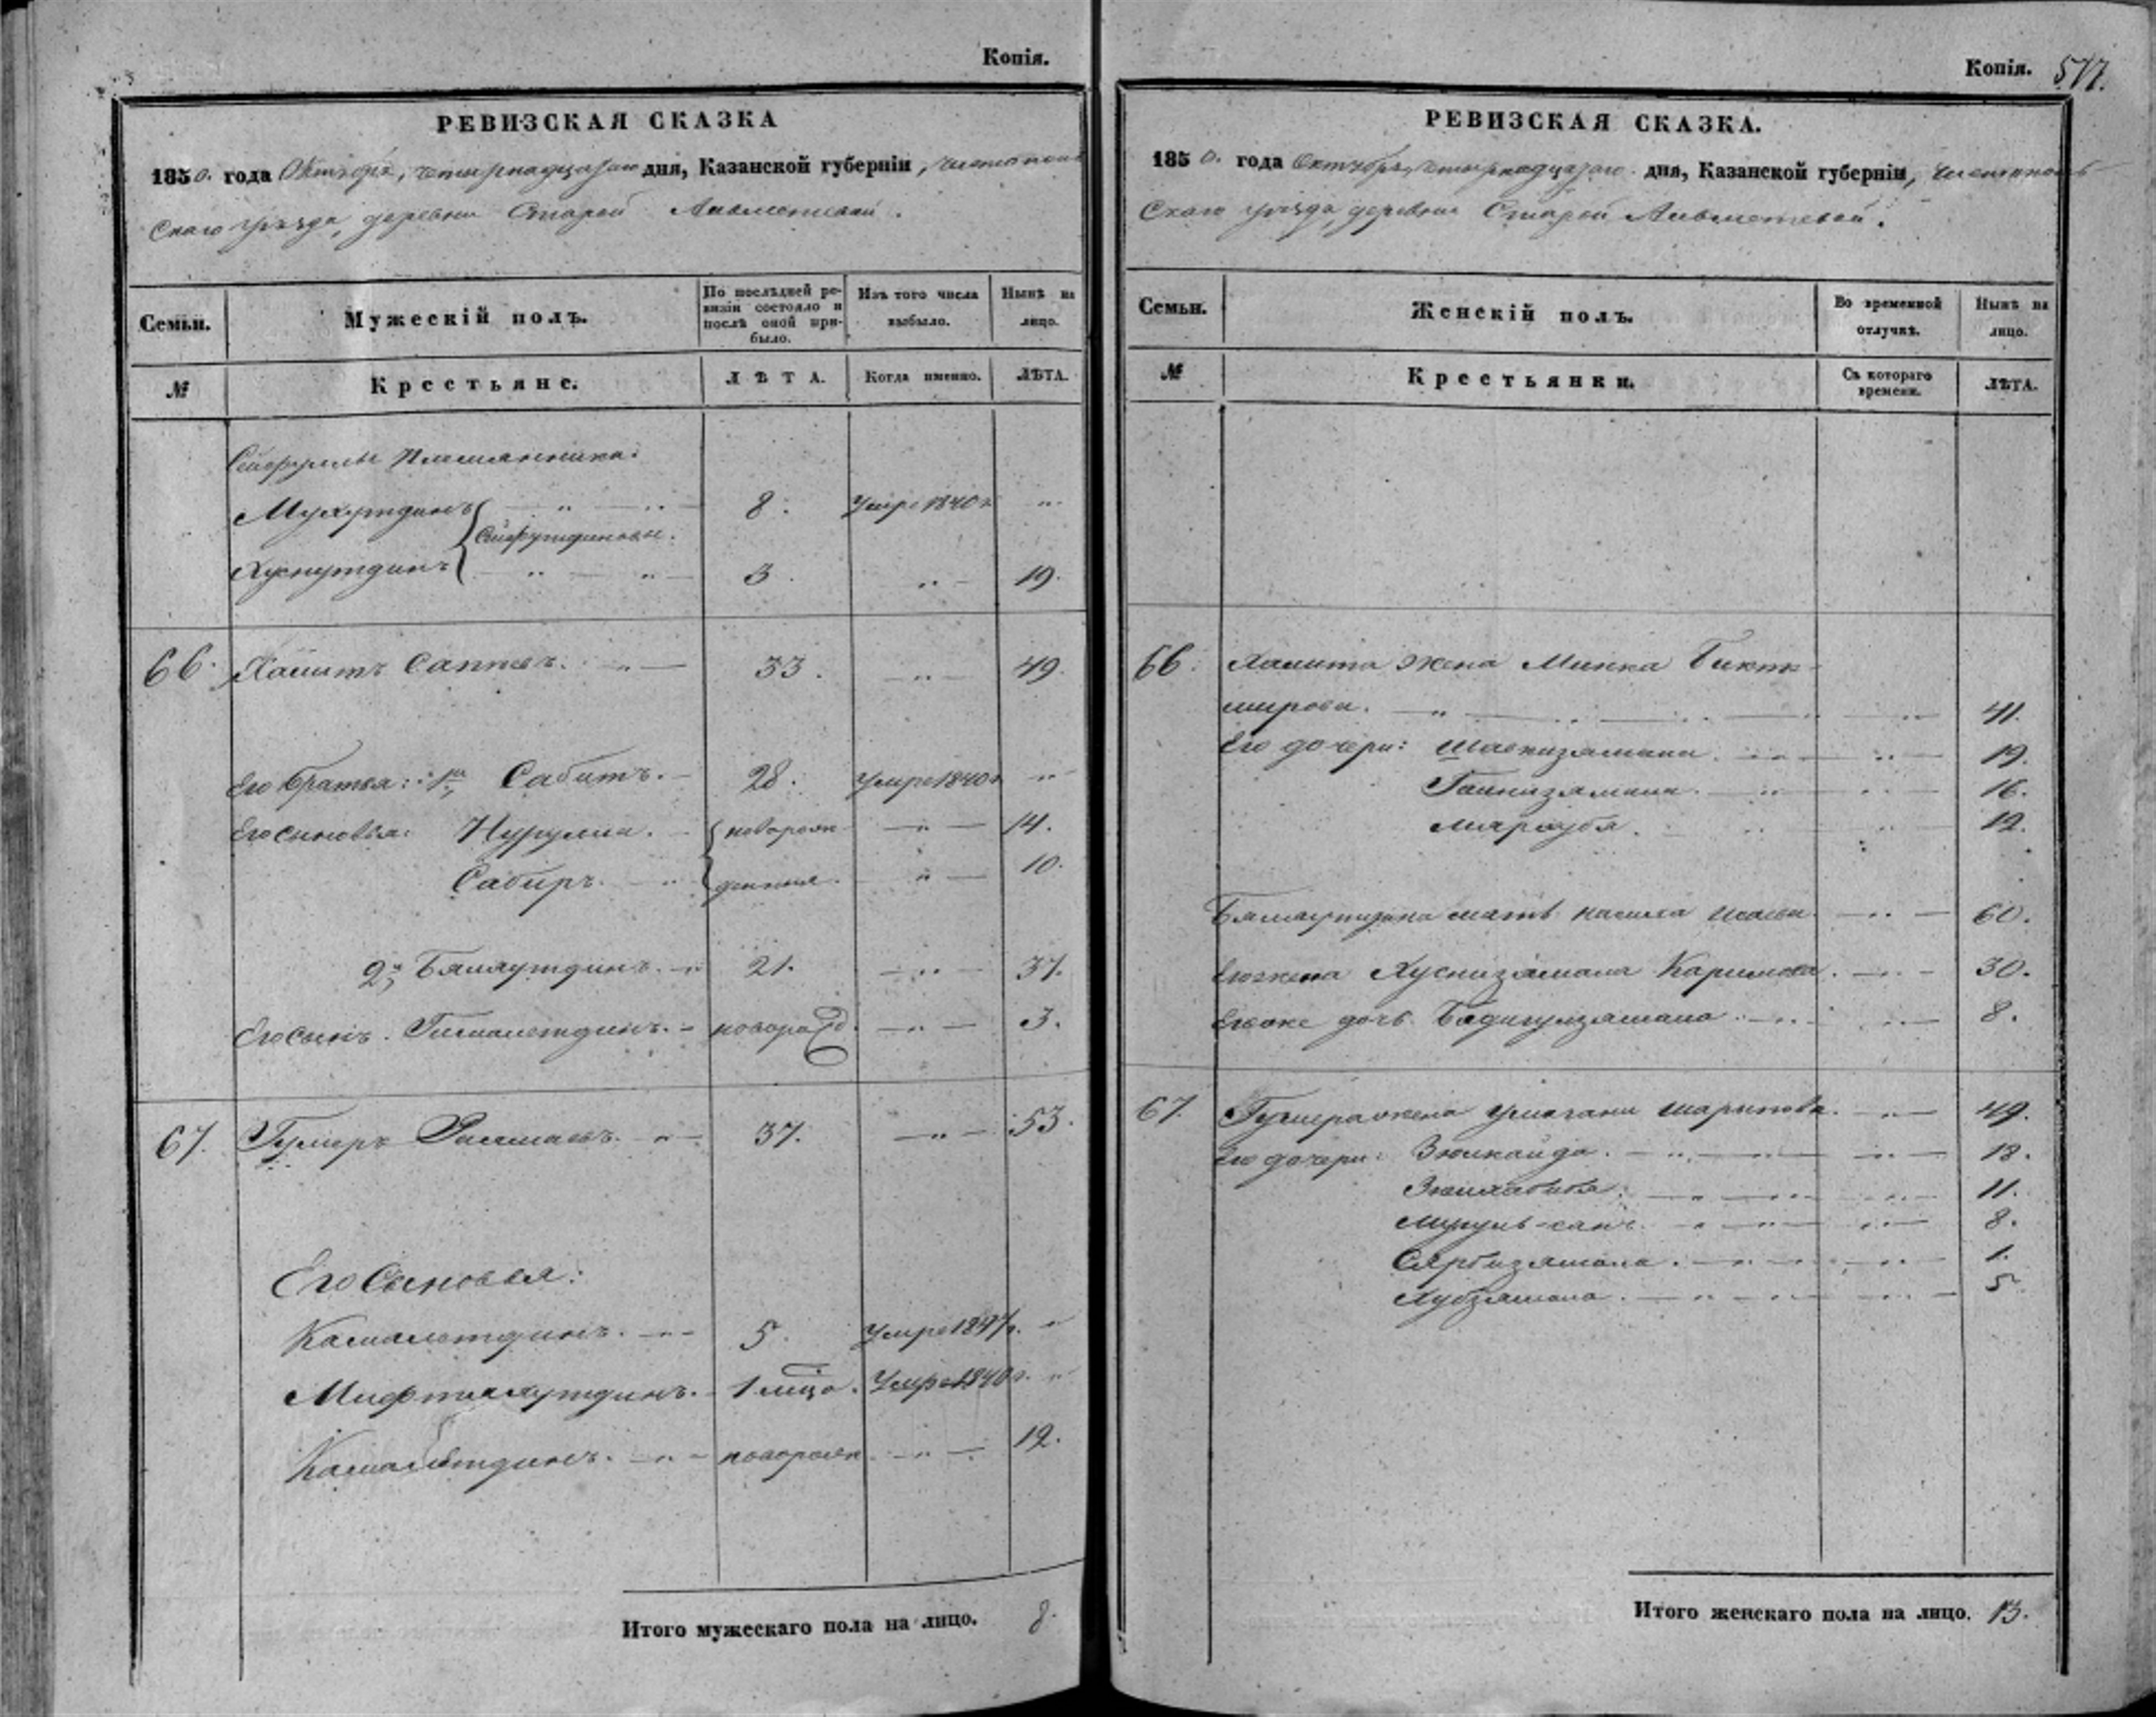 Копія.
РЕВИЗСКАЯ СКАЗКА
1850. года Октября, четырнадцатаго дня, Казанской губерніи, Чистополь
скаго уѣзда, деревни Старой Альметевой.
Семьи.
Мужескій полъ.
По послѣдней ре-
визіи состояло и
послѣ оной при-
было.
Изъ того числа
выбыло.
Нынѣ на
лицо.
№
Крестьяне.
ЛѢТА.
Когда именно.
ЛѢТА.
Сейфуллы племянники:
Мухутдинъ 8. Умре 1840 г
Сейфутдиновы.
Хуснутдинъ 3. 19.
66. Хамитъ 33. 49.
Его братья: 1й, Сабитъ. 28. Умре 1840 г
Его сыновья: Нурулла. новорож 14.
Сабиръ. денныя. 10.
2й, Бямаутдинъ. 21. 37.
Его сынъ. новорожд. 3.
67. Гумеръ 37. 53.
Его Сыновья:
Камалетдинъ. 5. Умре 184
Мифтахутдинъ. 1 Умре 1840 г.
Камалетдинъ. новорожд 12.
Итого мужескаго пола на лицо. 8.
Копія. 577.
РЕВИЗСКАЯ СКАЗКА.
1850. года Октября, четырнадцатаго дня, Казанской губерніи, Чистополь
скаго уѣзда, деревни Старой Альметевой.
Семьи.
Женскій полъ.
Во временной
отлучкѣ.
Нынѣ на
лицо.
№
Крестьянки.
Съ котораго
времени.
ЛѢТА.
66. Хамита жена Минка Бикти
мирова. 41.
Его дочери: 19.
Гайнизямала. 16.
Маргуба. 12.
Бямаутдина мать 60.
Его жена Хуснизямала Каримова. 30.
Его же дочь Бадигулзямала. 8.
67. Гумера жена Шарипова. 49.
Его дочери: Зюлкайда. 18.
Зюлхабиба. 11.
8.
Сярбизямала. 1.
Хубзямала. 5
Итого женскаго пола на лицо. 13.